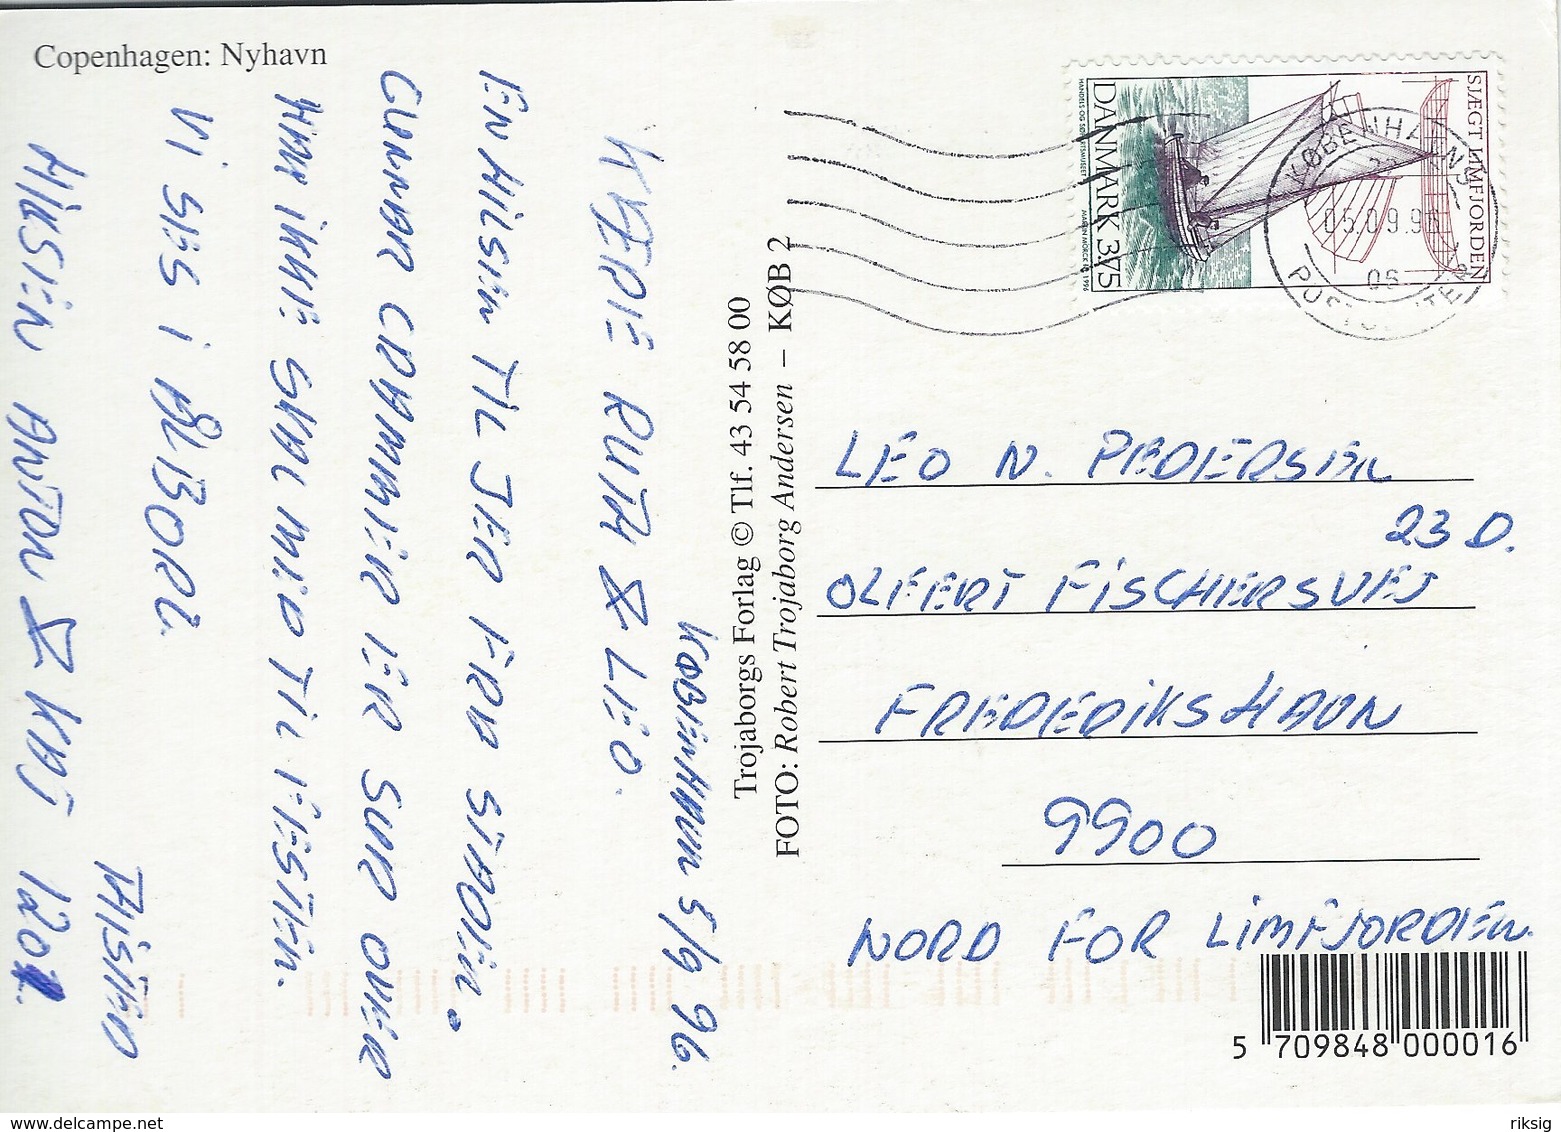 Copenhagen: Nyhavn
KØBENHAVN 5/9 96.
KÆRE RUTH & LEO.
EN HILSEN TIL JER FRA STADEN.
GUNNAR GRAMMER ER SUR OVER
HAN IKKE SKAL MED TIL FESTEN.
VI SES I ÅLBORG.
HILSEN ANTON & KAJ
THISTED 1201.
Trojaborgs Forlag © Tlf. 43 54 58 00
FOTO: Robert Trojaborg Andersen – KØB 2
SJÆGT LIMFJORDEN
DANMARK 3.75
HANDELS OG SØFARTSMUSEET
MARTIN MÖRCK 1996
KØBENHAVNS
05.09.96
POSTCENTER
LEO N. PEDERSEN
23 D.
OLFERT FISCHERSVEJ
FREDERIKSHAVN
9900
NORD FOR LIMFJORDEN.
5 709848 000016
riksig
www.delcampe.net